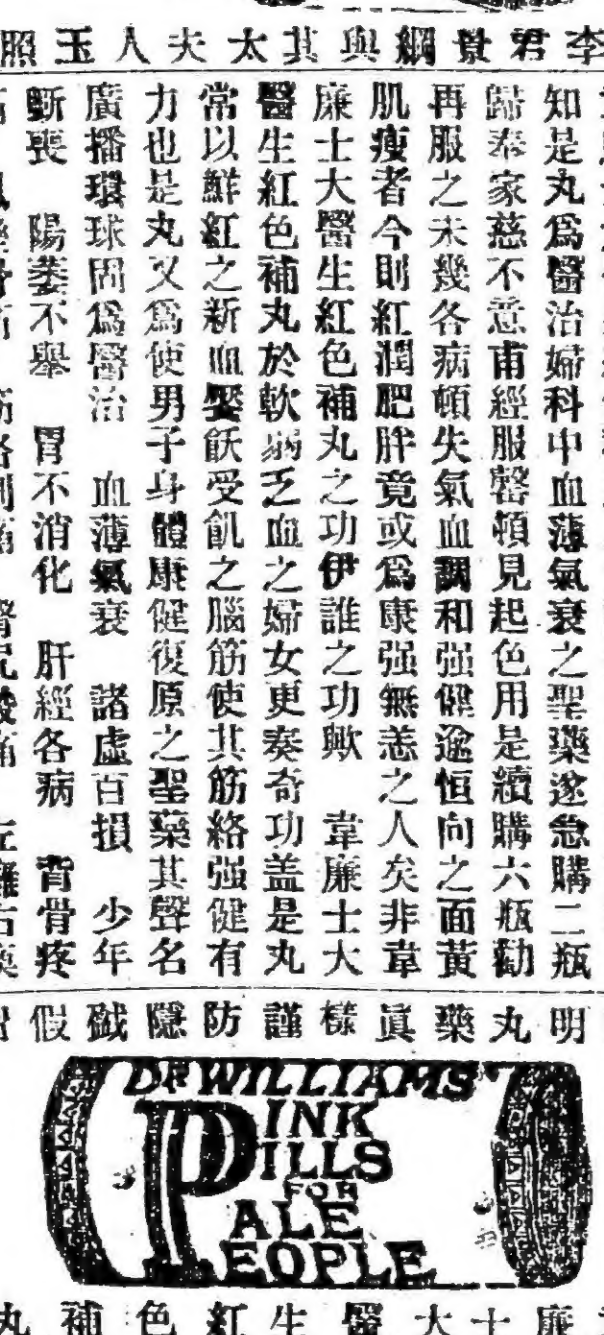 李君景綱與其太夫人玉照
知是丸為醫治婦科中血薄氣衰之聖藥遂急購二瓶
歸奉家慈不意甫經服罄頓見起色用是續購六瓶勸
再服之未幾各病頓失氣血調和强健逾恒向之面黃
肌瘦者今則紅潤肥胖竟或為康强無恙之人矣非韋
廉士大醫生紅色補丸之功伊誰之功歟 韋廉士大
醫生紅色補丸於軟弱乏血之婦女更奏奇功盖是丸
常以鮮紅之新血嬰飫受飢之腦筋使其筋絡强健有
力也是丸又為使男子身體康健復原之聖藥其聲名
廣播環球固為醫治 血薄氣衰 諸虛百損 少年
斲喪 陽萎不舉 胃不消化 肝經各病 背骨疼
明丸藥真樣謹防隱戤假
DR WILLIAMS'
PINK
PILLS
FOR
PALE
PEOPLE
廉士大醫生紅色補丸